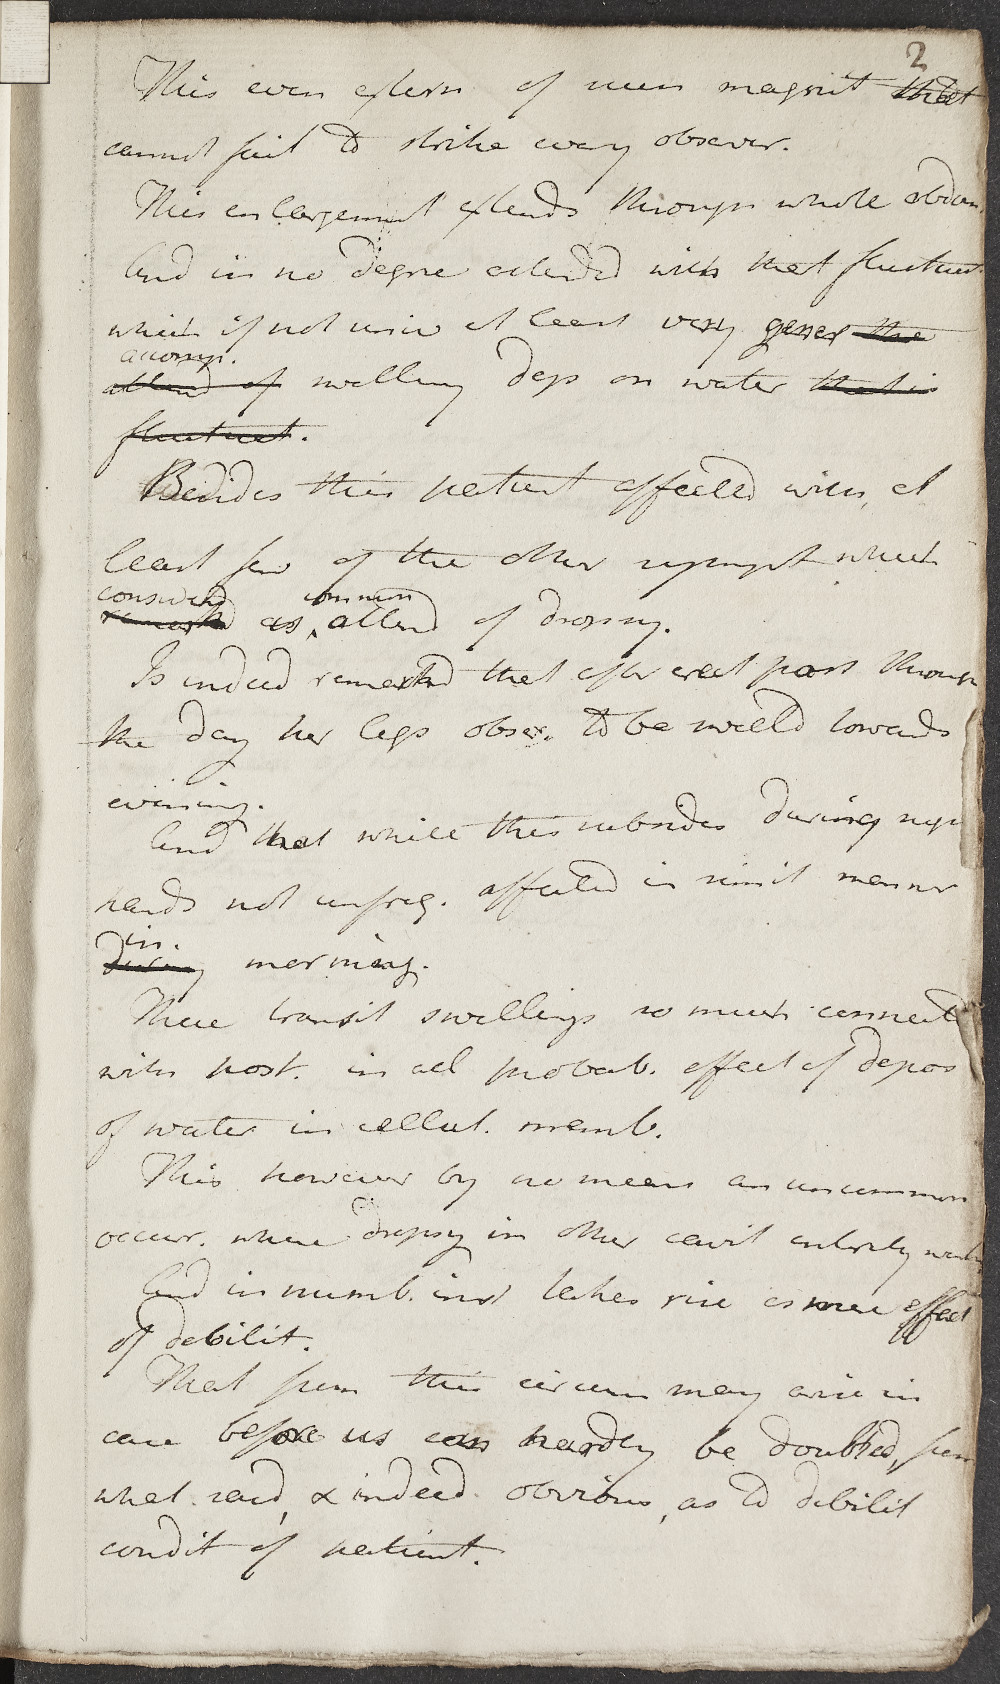 2
This even extern of such magnit that
cannot fail to strike every observer.
This enlargement extends through whole abdom
And in no degree attended with that fluctuat
which if not univ at least very gener the
accomp.
attend of swelling dep on water that is
fluctuat.
Besides this patient affected with, at
least few of the other sympt which
considerd common
remarkd as attend of dropsy.
Is indeed remarkd that after erect post through
the day her legs obser. to be swelld towards
evening.
And that while this subsides during nigh
hands not unfreq. affected in simil manner
in.
during morning.
These transit swellings so much connectd
with post. in all probab. effect of depos
of water in cellul. memb.
This however by no means an uncommon
occur. where dropsy in other cavit entirely wanting
And in numb. inst takes rise as mere effect
of debilit.
That from this circum may arise in
case before us can hardly be doubted, from
what said, & indeed obvious, as to debilit
condit of patient.